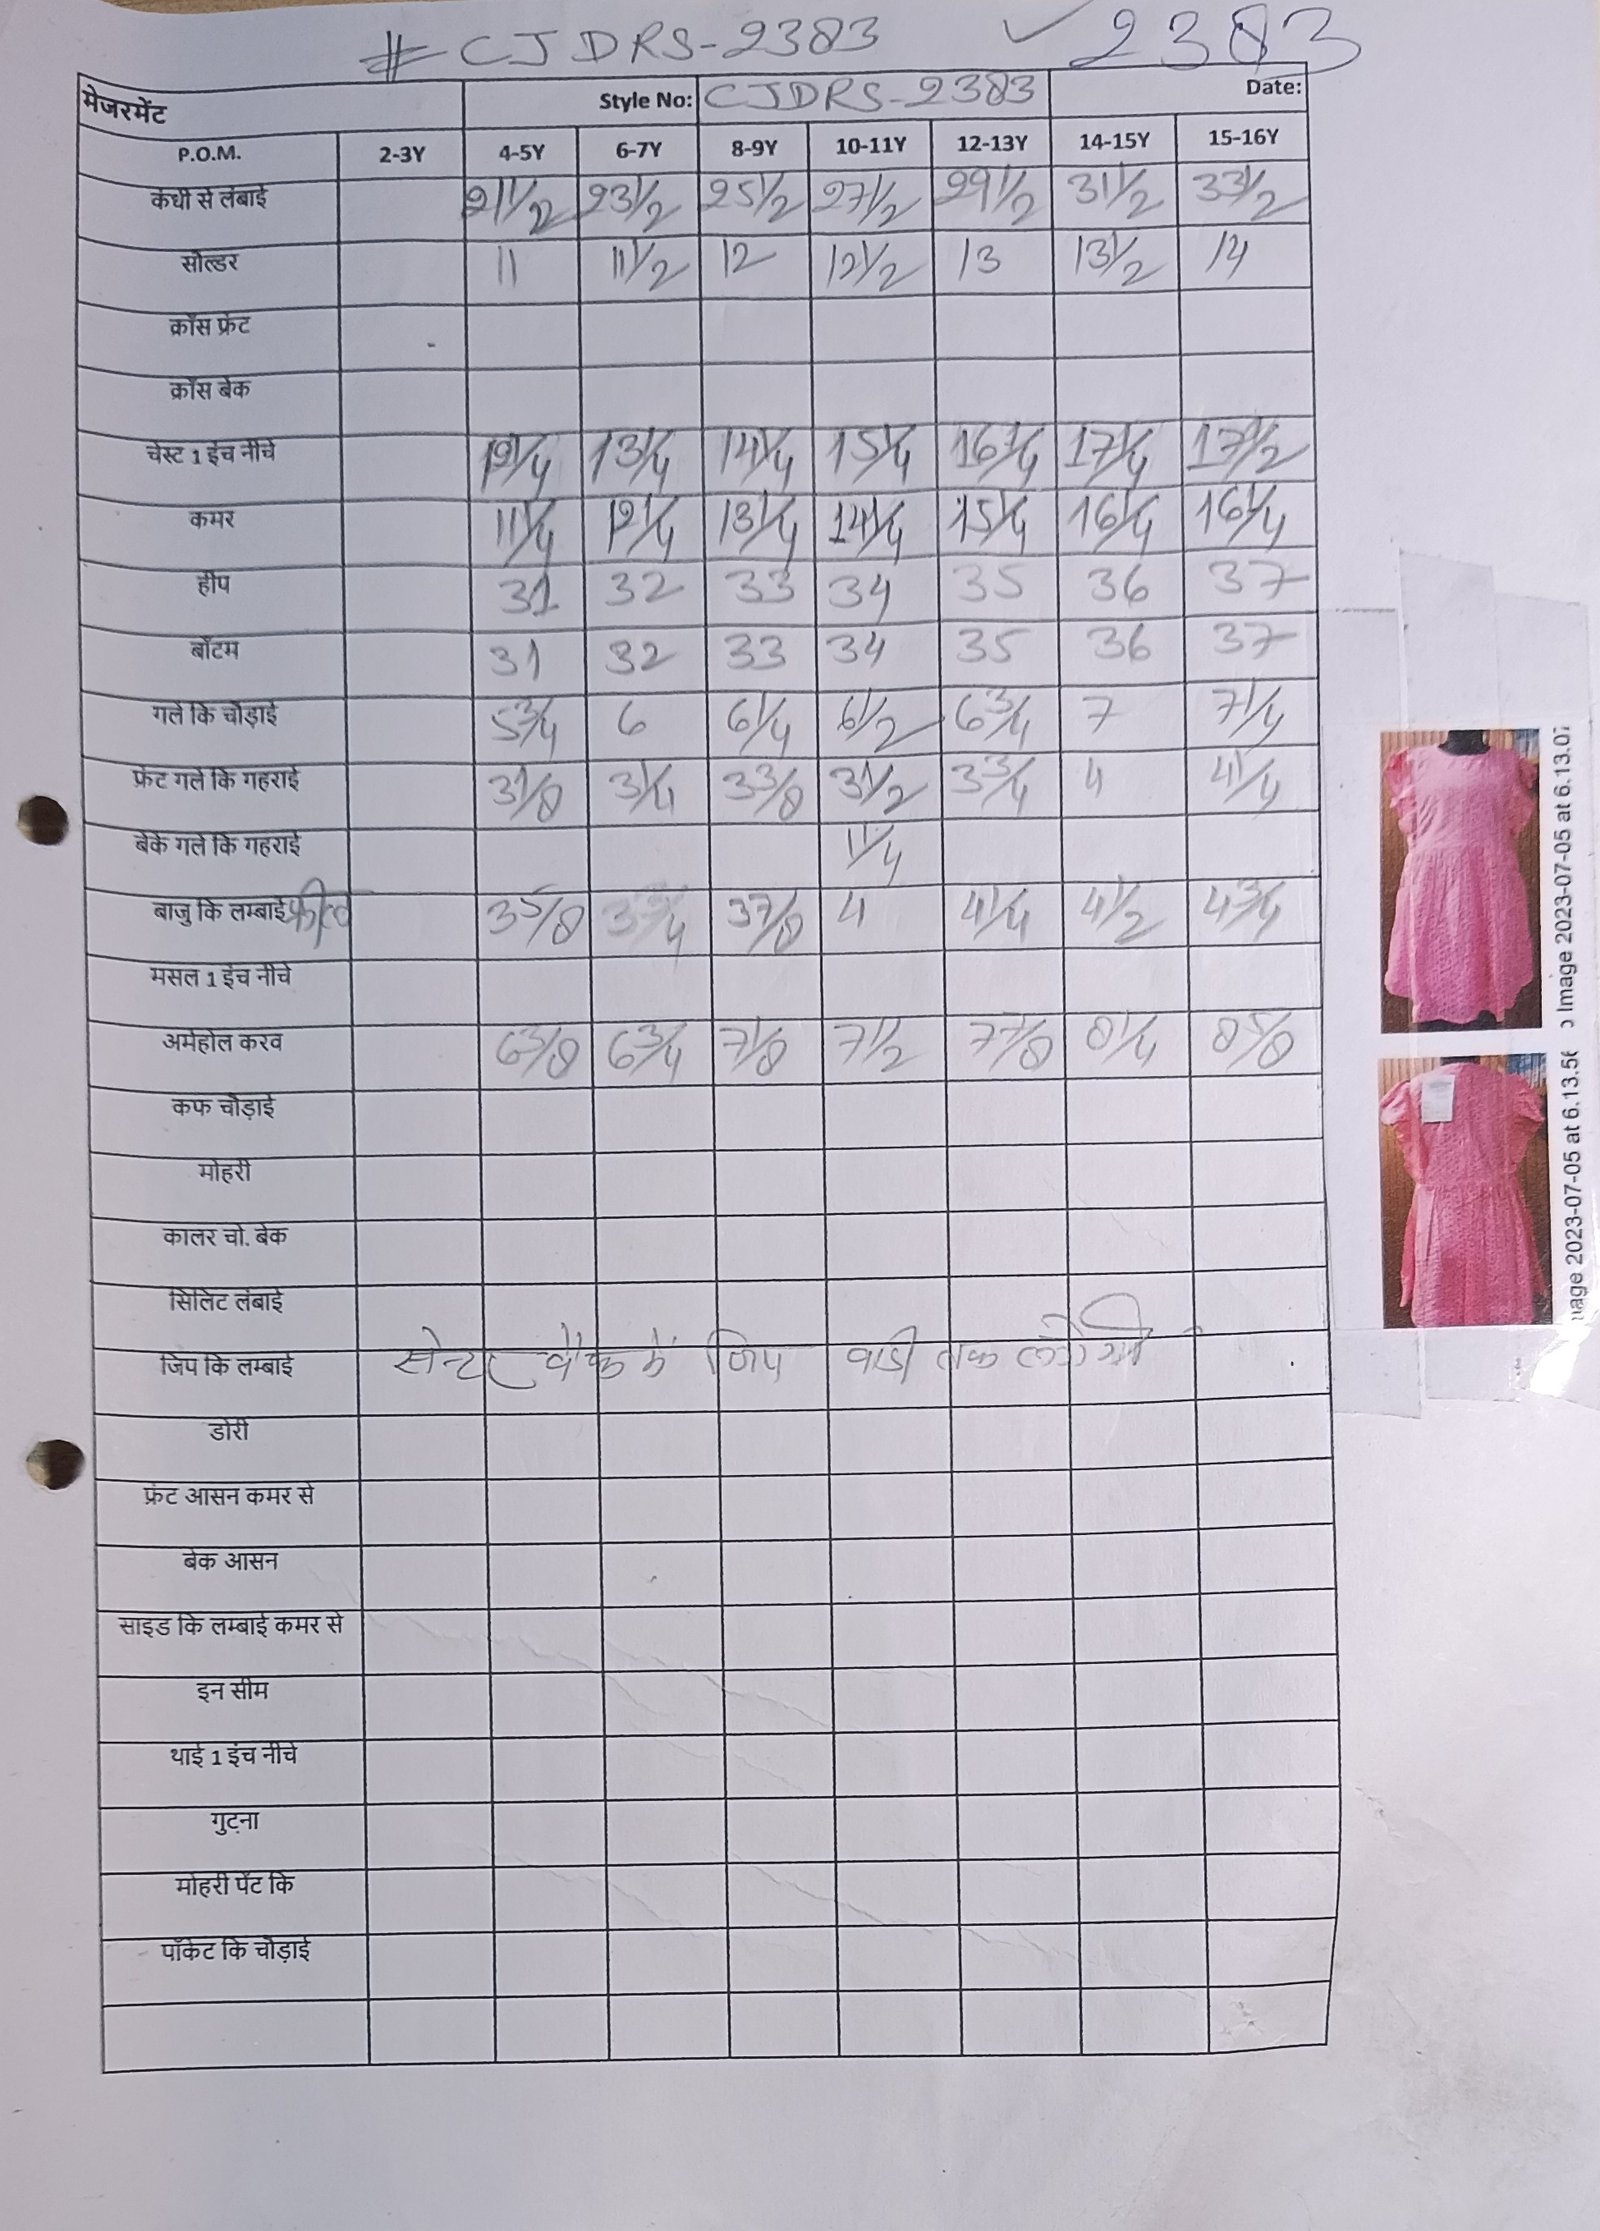 # CJDRS-2383 ✓ 2383
मेजरमेंट Style No: CJDRS-2383 Date:
P.O.M. 2-3Y 4-5Y 6-7Y 8-9Y 10-11Y 12-13Y 14-15Y 15-16Y
कंधी से लंबाई 21 1/2 23 1/2 25 1/2 27 1/2 29 1/2 31 1/2 33 1/2
सोल्डर 11 11 1/2 12 12 1/2 13 13 1/2 14
क्रॉस फ्रंट
क्रॉस बेक
चेस्ट 1 इंच नीचे 12 1/4 13 1/4 14 1/4 15 1/4 16 1/4 17 1/4 17 1/2
कमर 11 1/4 12 1/4 13 1/4 14 1/4 15 1/4 16 1/4 16 1/4
हीप 31 32 33 34 35 36 37
बॉटम 31 32 33 34 35 36 37
गले कि चौड़ाई 5 3/4 6 6 1/4 6 1/2 6 3/4 7 7 1/4
फ्रंट गले कि गहराई 3 1/8 3 1/4 3 3/8 3 1/2 3 3/4 4 4 1/4
बेक गले कि गहराई 1 1/4
बाजु कि लम्बाई 3 5/8 3 3/4 3 7/8 4 4 1/4 4 1/2 4 3/4
मसल 1 इंच नीचे
अर्महोल करव 6 3/8 6 3/4 7 1/8 7 1/2 7 7/8 8 1/4 8 5/8
कफ चौड़ाई
मोहरी
कालर चो. बेक
सिलिट लंबाई
जिप कि लम्बाई सेन्टर बैक में जिप बाडी तक लगेगी
डोरी
फ्रंट आसन कमर से
बेक आसन
साइड कि लम्बाई कमर से
इन सीम
थाई 1 इंच नीचे
गुटना
मोहरी पेंट कि
पॉकेट कि चौड़ाई
Image 2023-07-05 at 6.13.0
age 2023-07-05 at 6.13.5